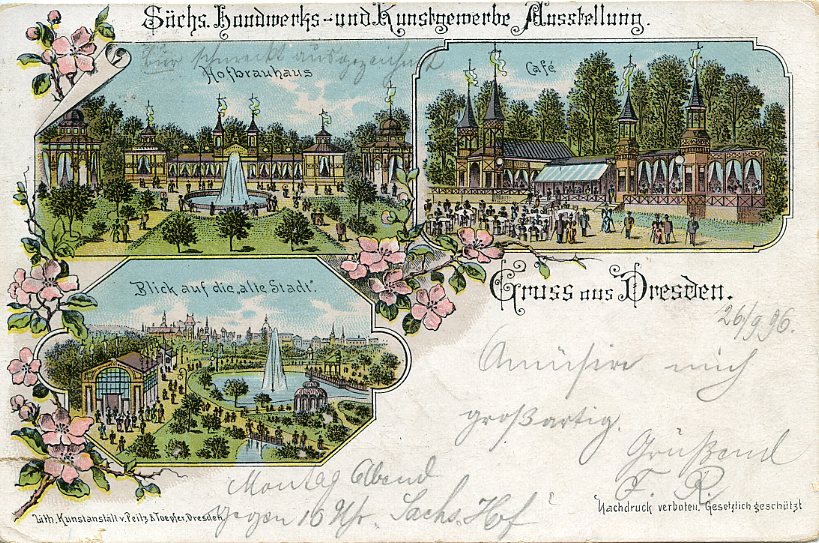 Sächs. Handwerks- und Kunstgewerbe Ausstellung.
schmeckt ausgezeichnet
Hofbräuhaus
Café
Blick auf die „alte Stadt".
Gruss aus Dresden.
26/9 96.
Amüsire mich
großartig.
Grüßend
F. R.
Montag Abend
gegen 10 Uhr. „Sächs. Hof"
Lith. Kunstanstalt v. Peitz & Toepfer, Dresden.
Nachdruck verboten. Gesetzlich geschützt